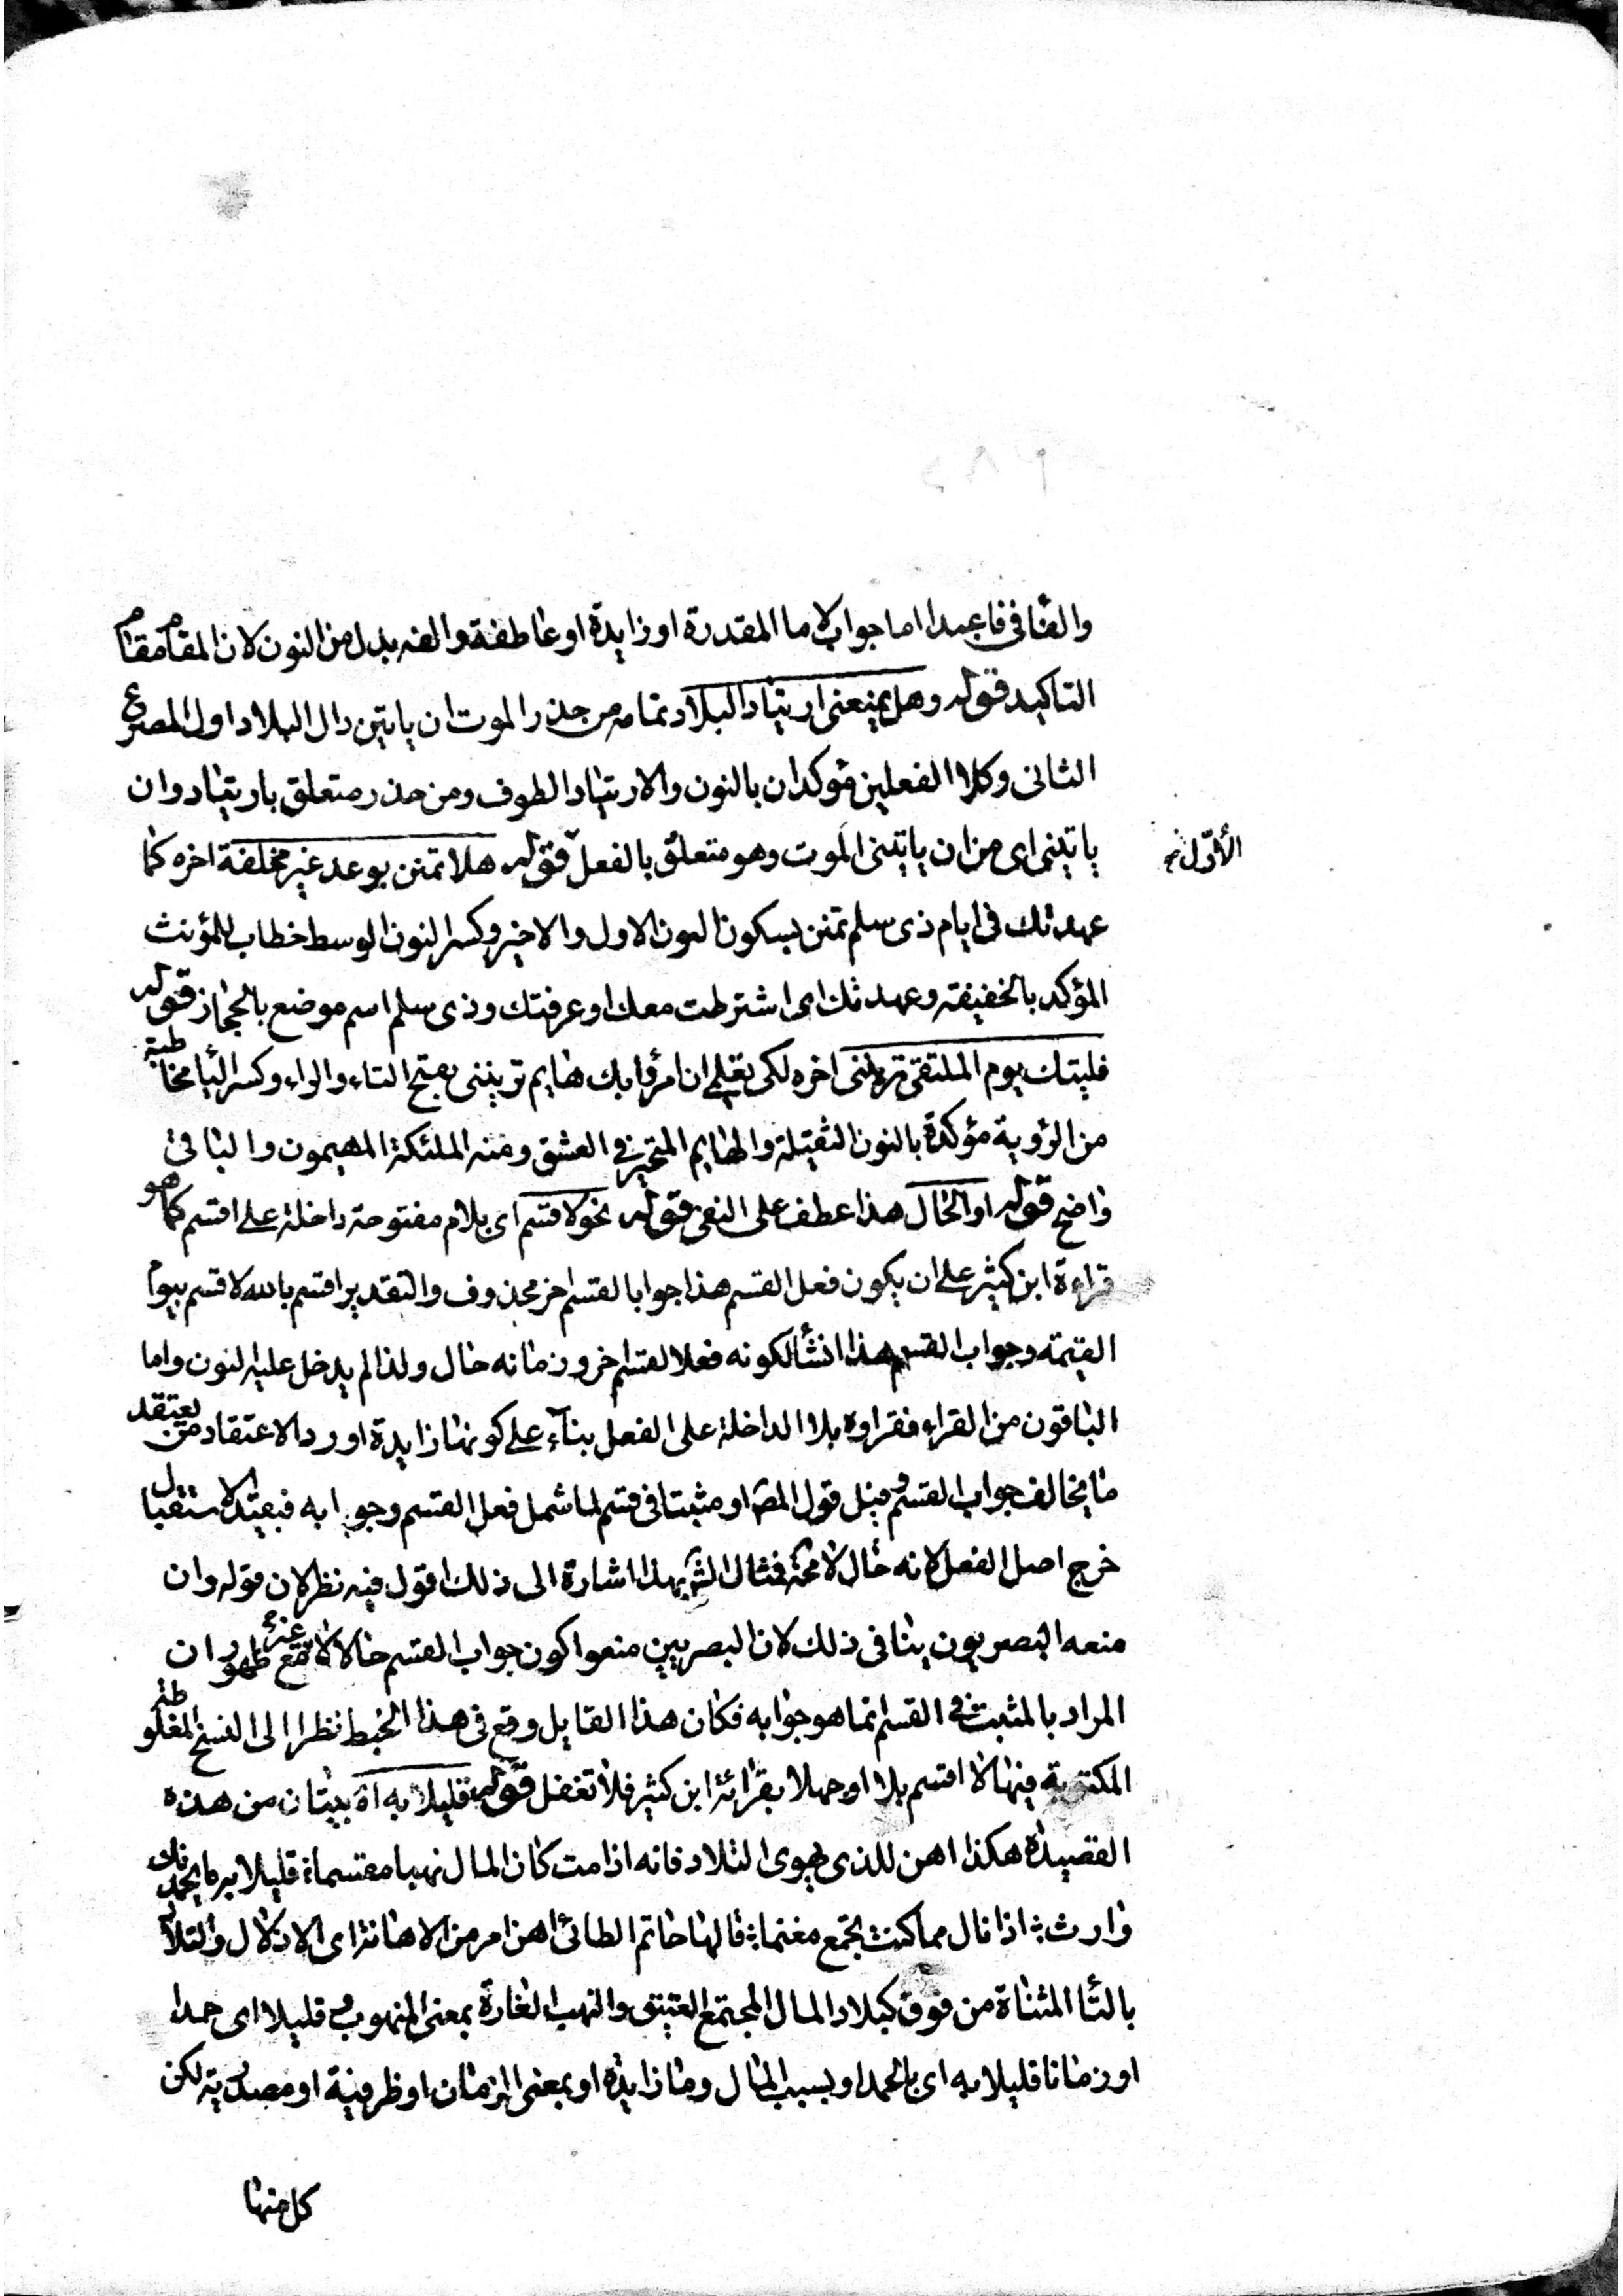 والفا فى فاعبدا اما جواب لاما المقدرة او زايدة او عاطفة والفه بدل من النون لان المقام مقام
التاكيد قوله وهل يمنعنى ارتياد البلاد تمامه من حذر الموت ان ياتين دال البلاد اول المصرع
الثانى وكلا الفعلين مؤكدان بالنون والارتياد الطوف ومن حذر متعلق بارتياد وان
ياتينى اى من ان ياتينى الموت وهو متعلق بالفعل قوله هلا تمنن بوعد غير مخلفة اخره كما
الأوّل
عهدتك فى ايام ذى سلم تمنن بسكون النون الاول والاخير وكسر النون الوسط خطاب للمؤنث
المؤكد بالخفيفة وعهدتك اى اشترطت معك او عرفتك وذى سلم اسم موضع بالحجاز قوله
فليتك يوم الملتقى ترينى اخره لكى تعلمى ان امرؤ بك هايم ترينى بفتح التاء والراء وكسر اليا مخاطبة
من الرؤية مؤكدة بالنون الثقيلة والهايم المتحير فى العشق ومنه الملئكة المهيمون والباقى
واضح قوله او الحال هذا عطف على النفى قوله نحو لاقسم اى بلام مفتوحة داخلة على اقسم كما هو
قراءة ابن كثير على ان يكون فعل القسم هذا جوابا لقسم اخر محذوف والتقدير اقسم بالله لاقسم بيوم
القيمة وجواب القسم هذا انشأ لكونه فعلا لقسم اخر وزمانه حال ولذا لم يدخل عليه النون واما
الباقون من القراء فقراوه بلا الداخلة على الفعل بناء على كونها زايدة او رد الاعتقاد من يعتقد
ما يخالف جواب القسم وقيل قول المص او مثبتا فى قسم لما شمل فعل القسم وجوابه فبقيد الاستقبال
خرج اصل الفعل لانه حال لا محة فمثال الش بهذا اشارة الى ذلك اقول فيه نظر لان قوله وان
منعه البصريون ينافى ذلك لان البصريين منعوا كون جواب القسم حالا لا مع ظهور ان
المراد بالمثبت فى القسم انما هو جوابه فكان هذا القايل وقع فى هذا الخبط نظرا الى النسخ المغلوطة
المكتوبة فيها لا اقسم بلا او جهلا بقرائة ابن كثير فلا تغفل قوله قليلا به اه بيتان من هذه
القصيدة هكذا اهن للذى يهوى التلاد فانه اذا مت كان المال نهبا مقسما؛ قليلا به ما يحمدنك
وارث؛ اذا نال مما كنت تجمع مغنما؛ قالها حاتم الطائى اهن امر من الاهانة اى الاذلال والتلاد
بالتا المثناة من فوق كبلاد المال المجتمع العتيق والنهب الغارة بمعنى المنهوب و قليلا اى حمدا
او زمانا قليلا به اى بالحمد او بسبب المال وما زايدة او بمعنى الزمان او ظرفية او مصدرية لكن
كل منها